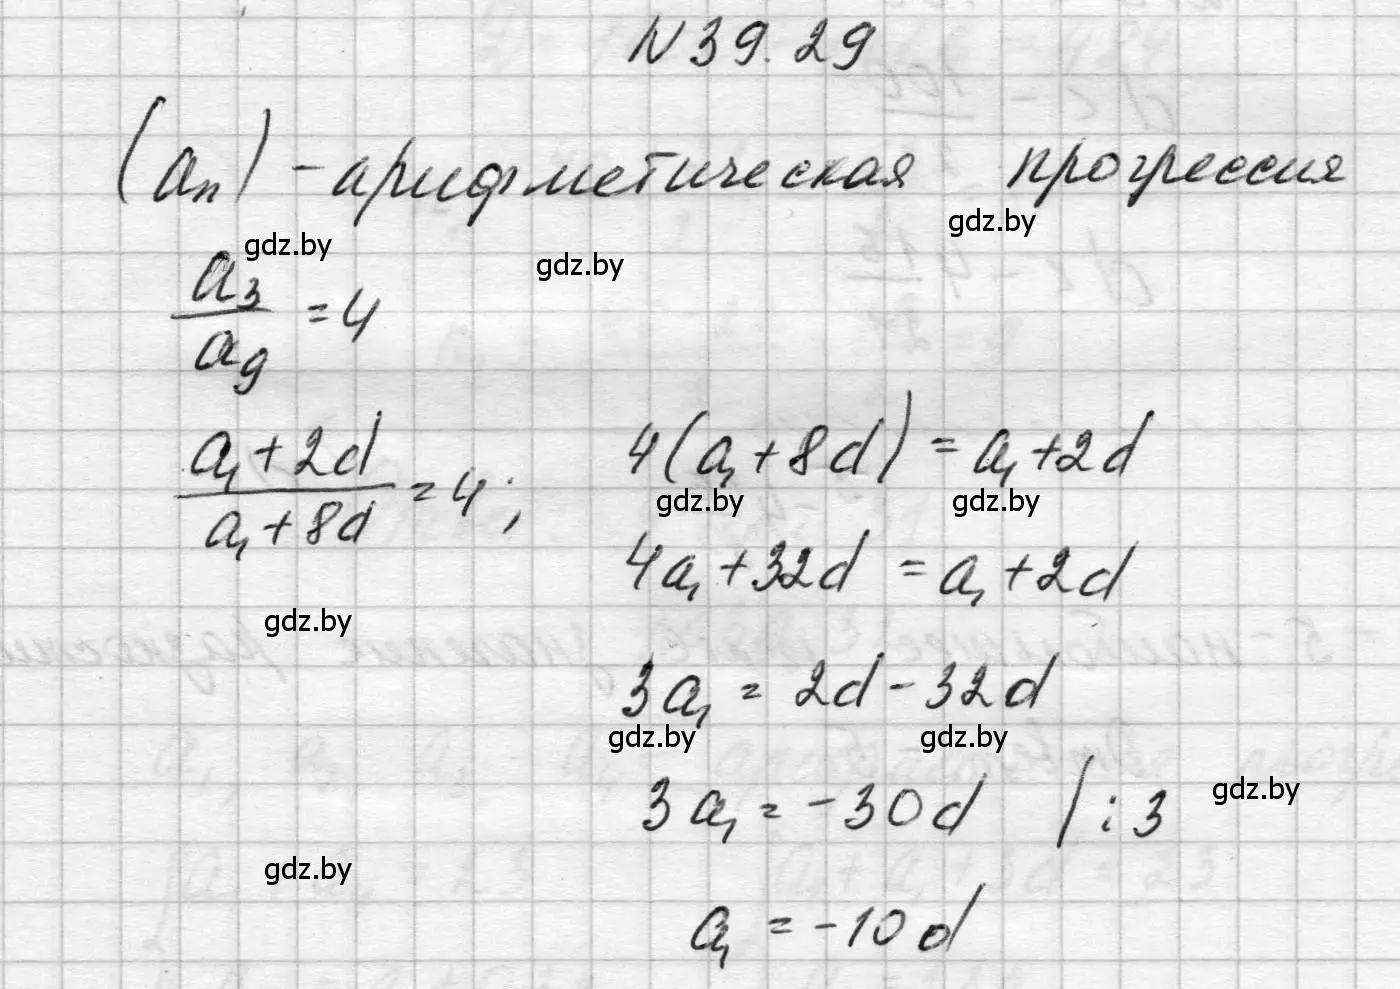 N 39.29
(aₙ) - арифметическая прогрессия
gdz.by
gdz.by gdz.by
a₃/a₉ = 4
(a₁+2d)/(a₁+8d) = 4; 4(a₁+8d) = a₁+2d
gdz.by gdz.by
4a₁+32d = a₁+2d
gdz.by
3a₁ = 2d-32d
gdz.by gdz.by
3a₁ = -30d |:3
gdz.by
gdz.by
a₁ = -10d